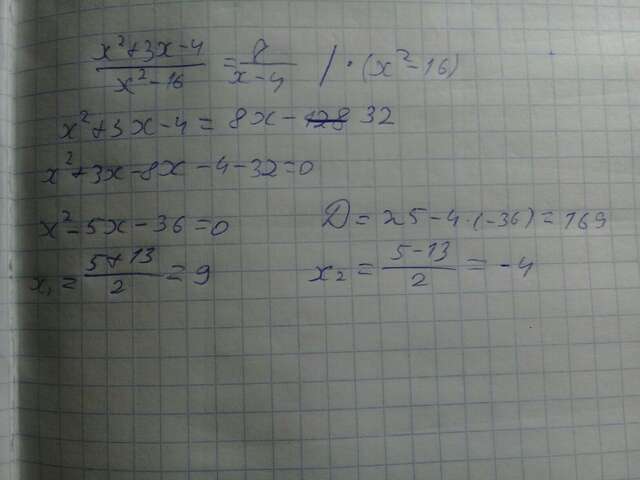 (x²+3x-4)/(x²-16) = 8/(x-4) / · (x²-16)
x²+3x-4 = 8x - 128 32
x²+3x-8x-4-32=0
x²-5x-36=0 D = 25-4·(-36)=169
x₁ = (5+13)/2 = 9 x₂ = (5-13)/2 = -4